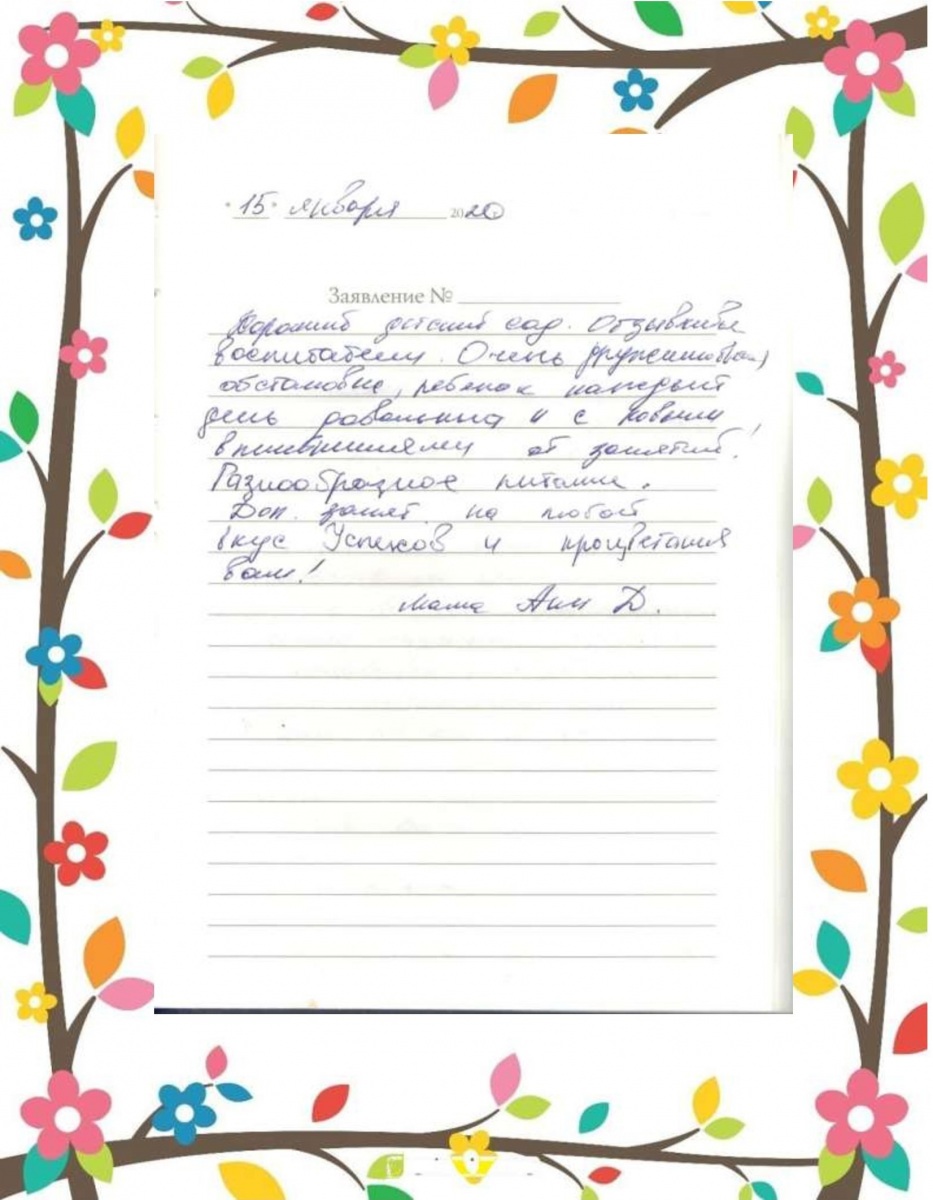 "15" января 2020
Заявление №
Хороший детский сад. Отзывчивые
воспитатели. Очень дружелюбная
обстановка, ребенок каждый
день довольный и с новыми
впечатлениями от занятий!
Разнообразное питание.
Доп. занят. на любой
вкус Успехов и процветания
вам!
мама Ани Д.